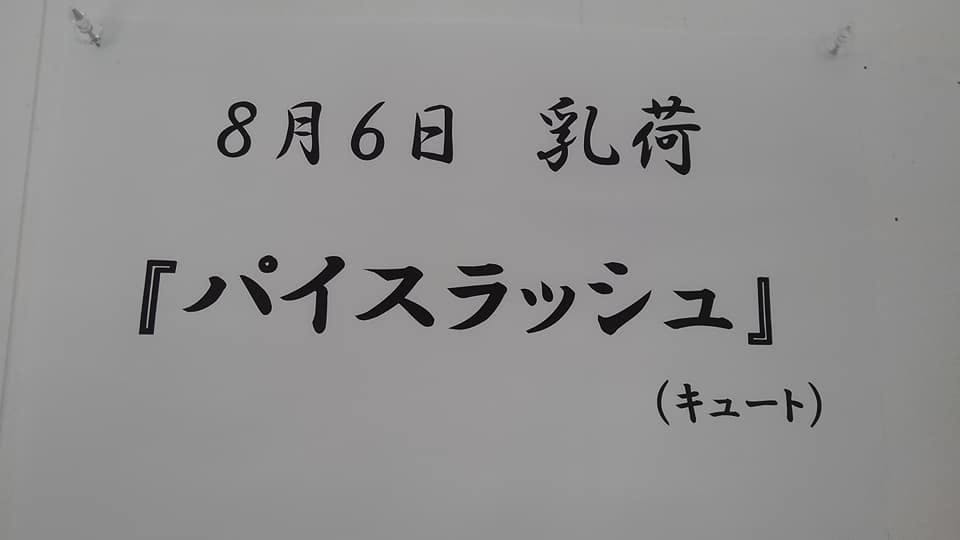 8月6日　乳荷
『パイスラッシュ』
（キュート）